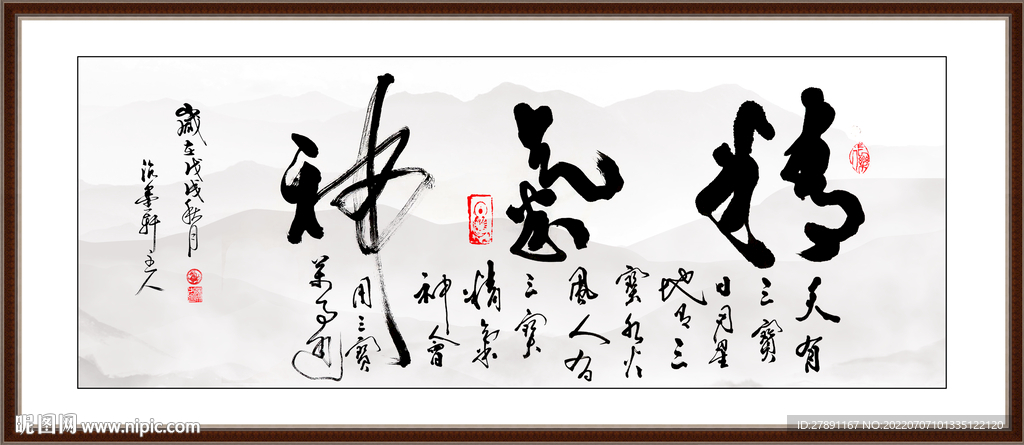 精氣神
天有
三寶
日月星
地有三
寶水火
風人有
三寶
精氣
神會
用三寶
萬事通
歲在戊戌秋月
墨軒主人
昵图网 www.nipic.com
ID:27891167 NO.20220707101335122120